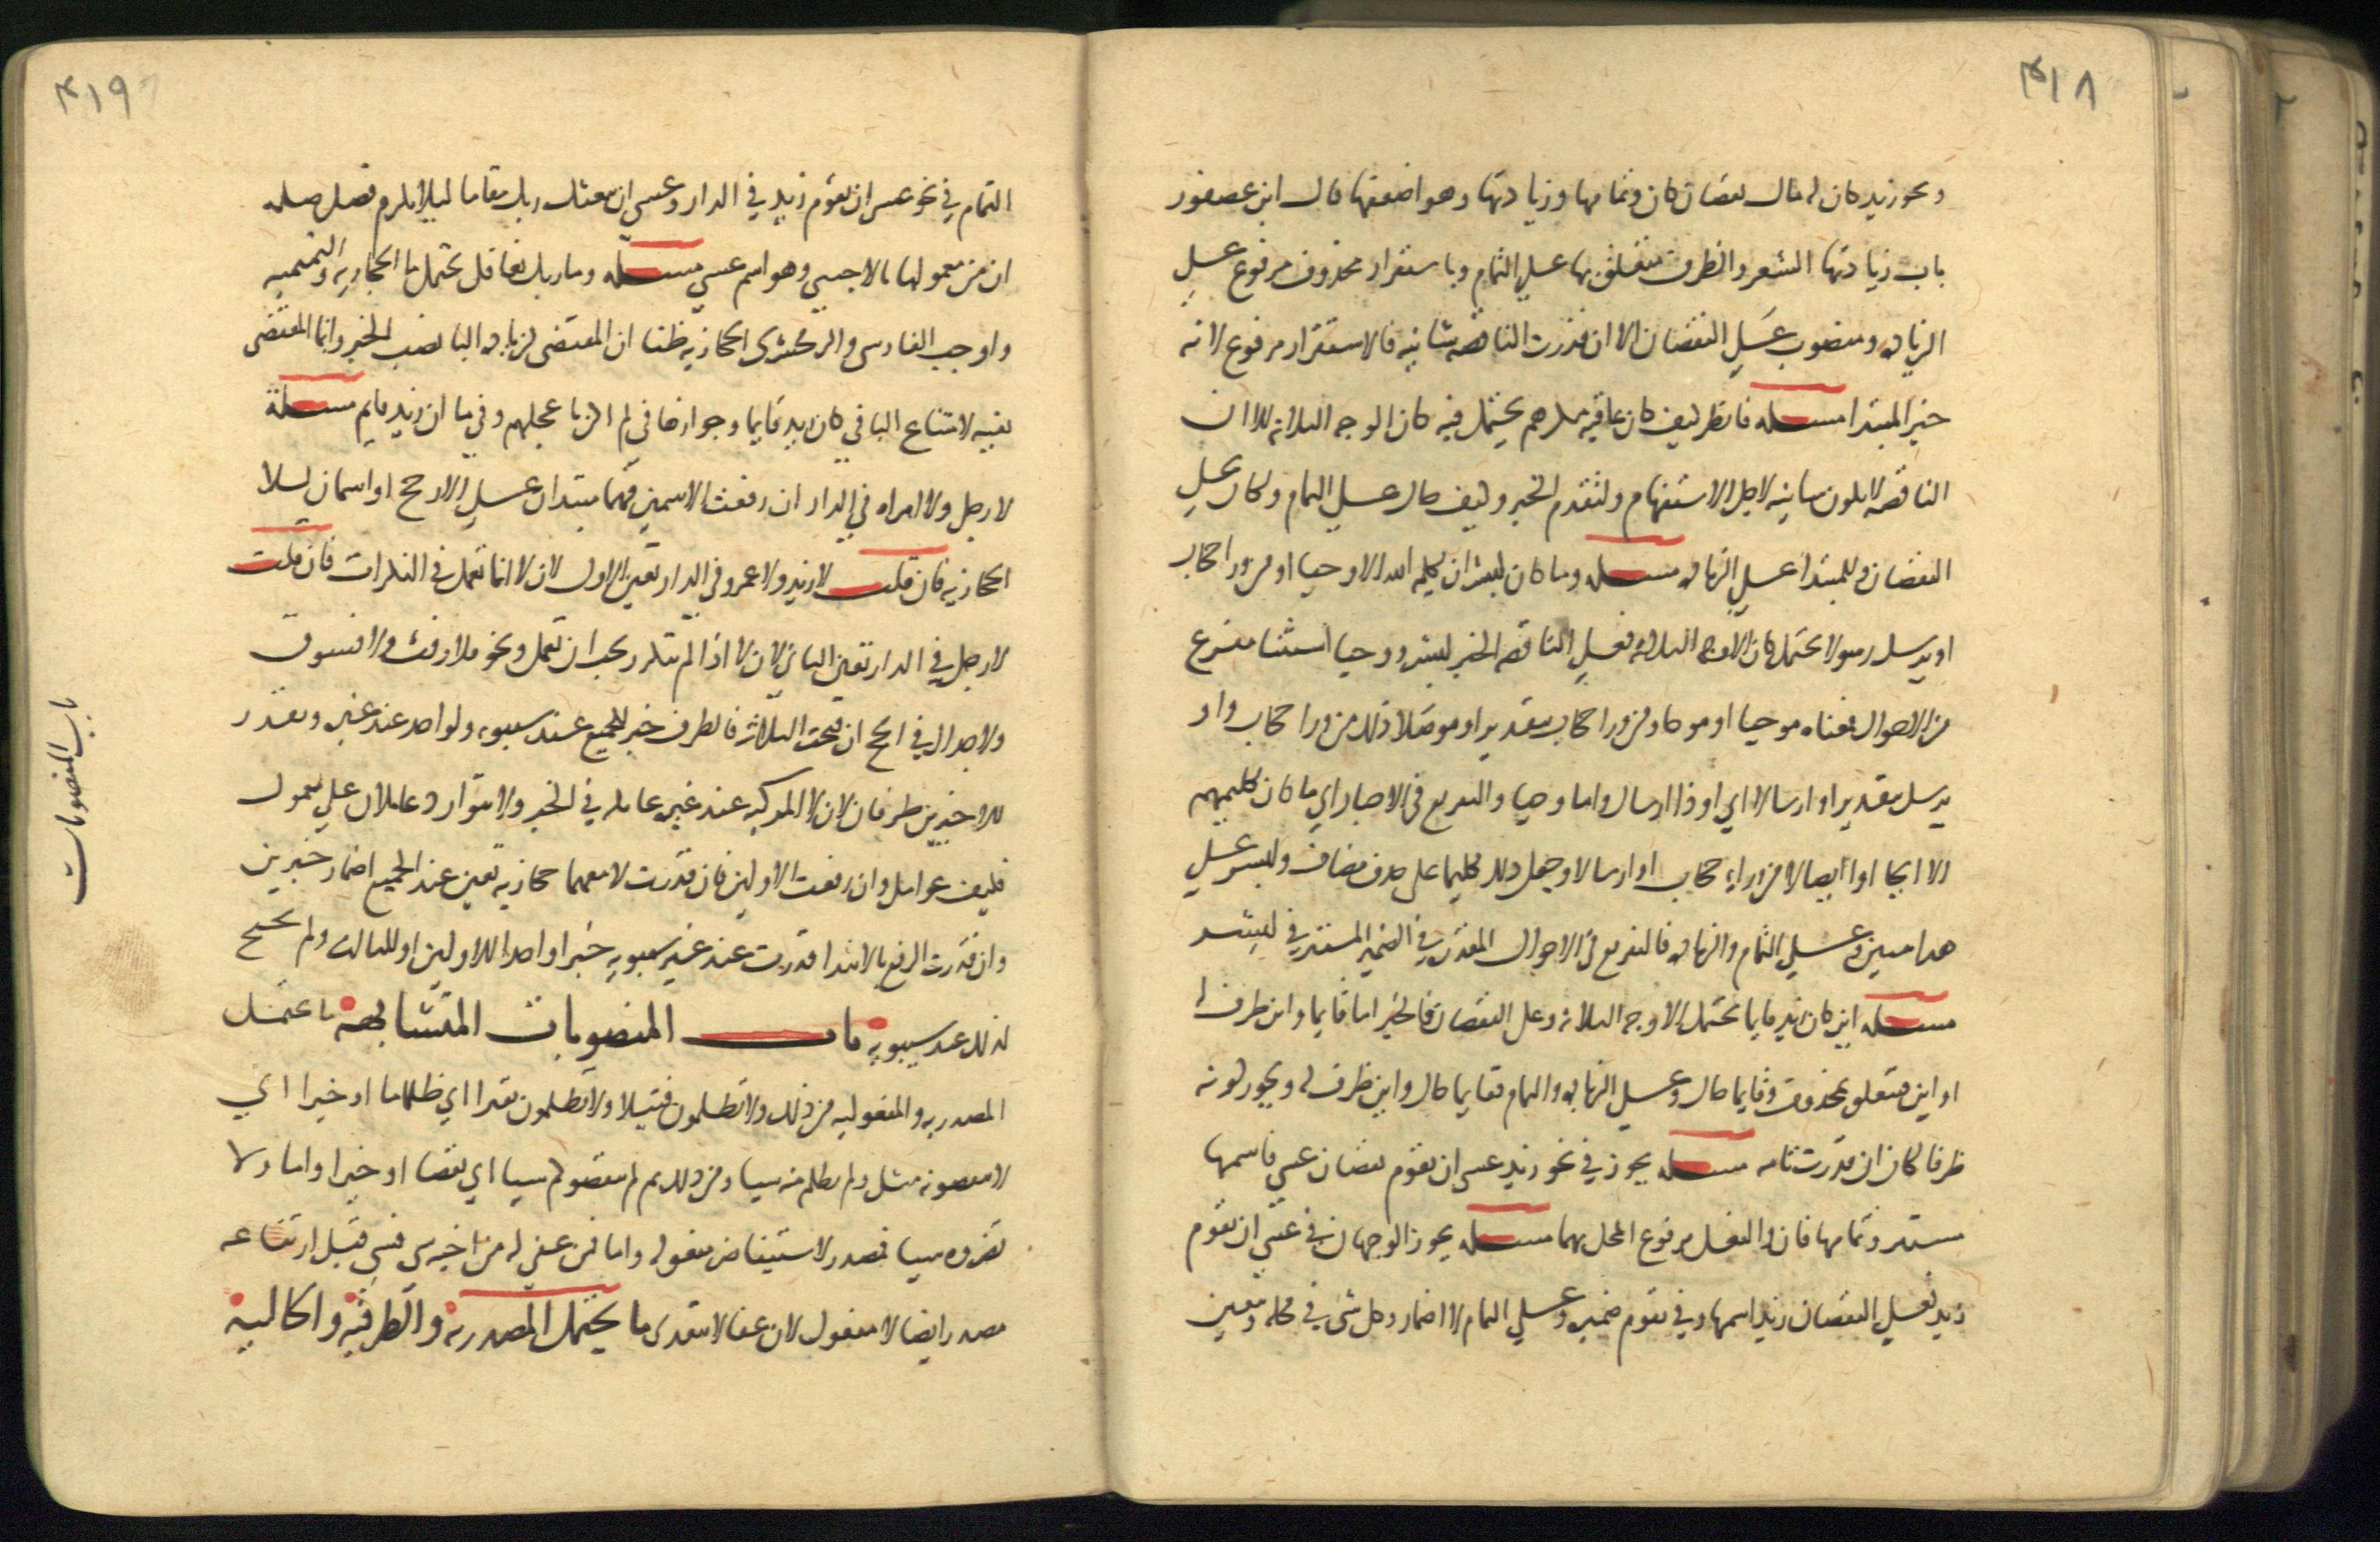 ٣١٨
ونحو زيد كان له مال نقصان كان وتمامها وزيادتها وهو اضعفها قال ابن عصفور
باب زيادتها الشعر والظرف متعلق بها علي التمام وباستقرار محذوف مرفوع علي
الزياده ومنصوب علي النقصان الا ان قدرت الناقصه شانيه فالاستقرار مرفوع لانه
خبر المبتدا مسله فانظر كيف كان عاقبه مكرهم يحتمل فيه كان الاوجه الثلاثه الا ان
الناقصه لا تكون شانيه لاجل الاستفهام ولتقدم الخبر وكيف حال علي التمام وكان علي
النقصان وللمبتدا علي الزياده مسله وما كان لبشر ان يكلمه الله الا وحيا او من ورا حجاب
او يرسل رسولا تحتمل كان الاوجه الثلاثه فعلي الناقصه الخبر لبشر ووحيا استثنا مفرغ
من الاحوال فمعناه موحيا او موحا ومن ورا حجاب بتقدير او موصلا ذلك من ورا حجاب واو
يرسل بتقدير او ارسالا اي او ذا ارسال واما وحيا والتفريع في الاخبار اي ما كان تكليمهم
الا ايحا او ايصالا من وراء حجاب او ارسالا وجعل ذلك تكليما على حذف مضاف ولبشر علي
هذا مبين وعلي التمام والزياده فالتفريع في الاحوال المقدره في الضمير المستتر في لبشر
مسله اين كان زيد قايما تحتمل الاوجه الثلاثه وعلي النقصان فالخبر اما قايما واين ظرف له
او اين متعلق بمحذوف وقايما حال وعلي الزياده والتمام فقايما حال واين ظرف له ويجوز كونه
ظرفا لكان ان قدرت تامه مسله يجوز في نحو زيد عسى ان يقوم نقصان عسي فاسمها
مستتر وتمامها فان والفعل مرفوع المحل بها مسله يجوز الوجهان في عسي ان يقوم
زيد فعلي النقصان زيد اسمها وفي يقوم ضميره وعلي التمام لا اضمار وكل شي في محله ويتعين
٣١٩
التمام في نحو عسى ان يقوم زيد في الدار وعسي ان يبعثك ربك مقاما ليلا يلزم فصل صله
ان من معمولها بالاجنبي وهو اسم عسي مسله وما ربك بغافل تحتمل ما الحجازيه والتميميه
واوجب الفارسي والزمخشري الحجازيه ظنا ان المقتضى لزياده البا نصب الخبر وانما المقتضى
نفيه لامتناع البا في كان زيد قايما وجوازها في لم اكن باعجلهم وفي ما ان زيد بقايم مسلة
لا رجل ولا امراه في الدار ان رفعت الاسمين فهما مبتدان علي الارجح او اسمان للا
الحجازيه فان قلت لا زيد ولا عمرو في الدار تعين الاول لان لا انما تعمل في النكرات فان قلت
لا رجل في الدار تعين الثاني لان لا اذا لم تتكرر يجب ان تعمل ونحو فلا رفث ولا فسوق
ولا جدال في الحج ان فتحت الثلاثه فالظرف خبر للجميع عند سيبويه ولواحد عند غيره ويقدر
للاخرين ظرفان لان لا المركبه عند غيره عامله في الخبر ولا يتوارد عاملان علي معمول
فكيف عوامل وان رفعت الاولين فان قدرت لا معهما حجازيه تعين عند الجميع اضمار خبرين
وان قدرت الرفع بالابتدا قدرت عند غير سيبويه خبرا واحدا للاولين او للثالث ولم تحتج
لذلك عند سيبويه باب المنصوبات المتشابهه ما يحتمل
المصدريه والمفعوليه من ذلك ولا تظلمون فتيلا ولا تظلمون نقيرا اي ظلما ما او خيرا اي
لا ينقصونه مثل ولم تظلم منه شيا ومن ذلك ثم لم ينقصوكم شيا اي نقصا او خيرا واما ولا
تضروه شيا فمصدر لاستيفا ضر مفعوله واما فمن عفي له من اخيه شي فشي قبل ارتفاعه
مصدر ايضا لا مفعول لان عفا لا يتعدى ما يحتمل المصدريه والظرفيه والحاليه
باب المنصوبات